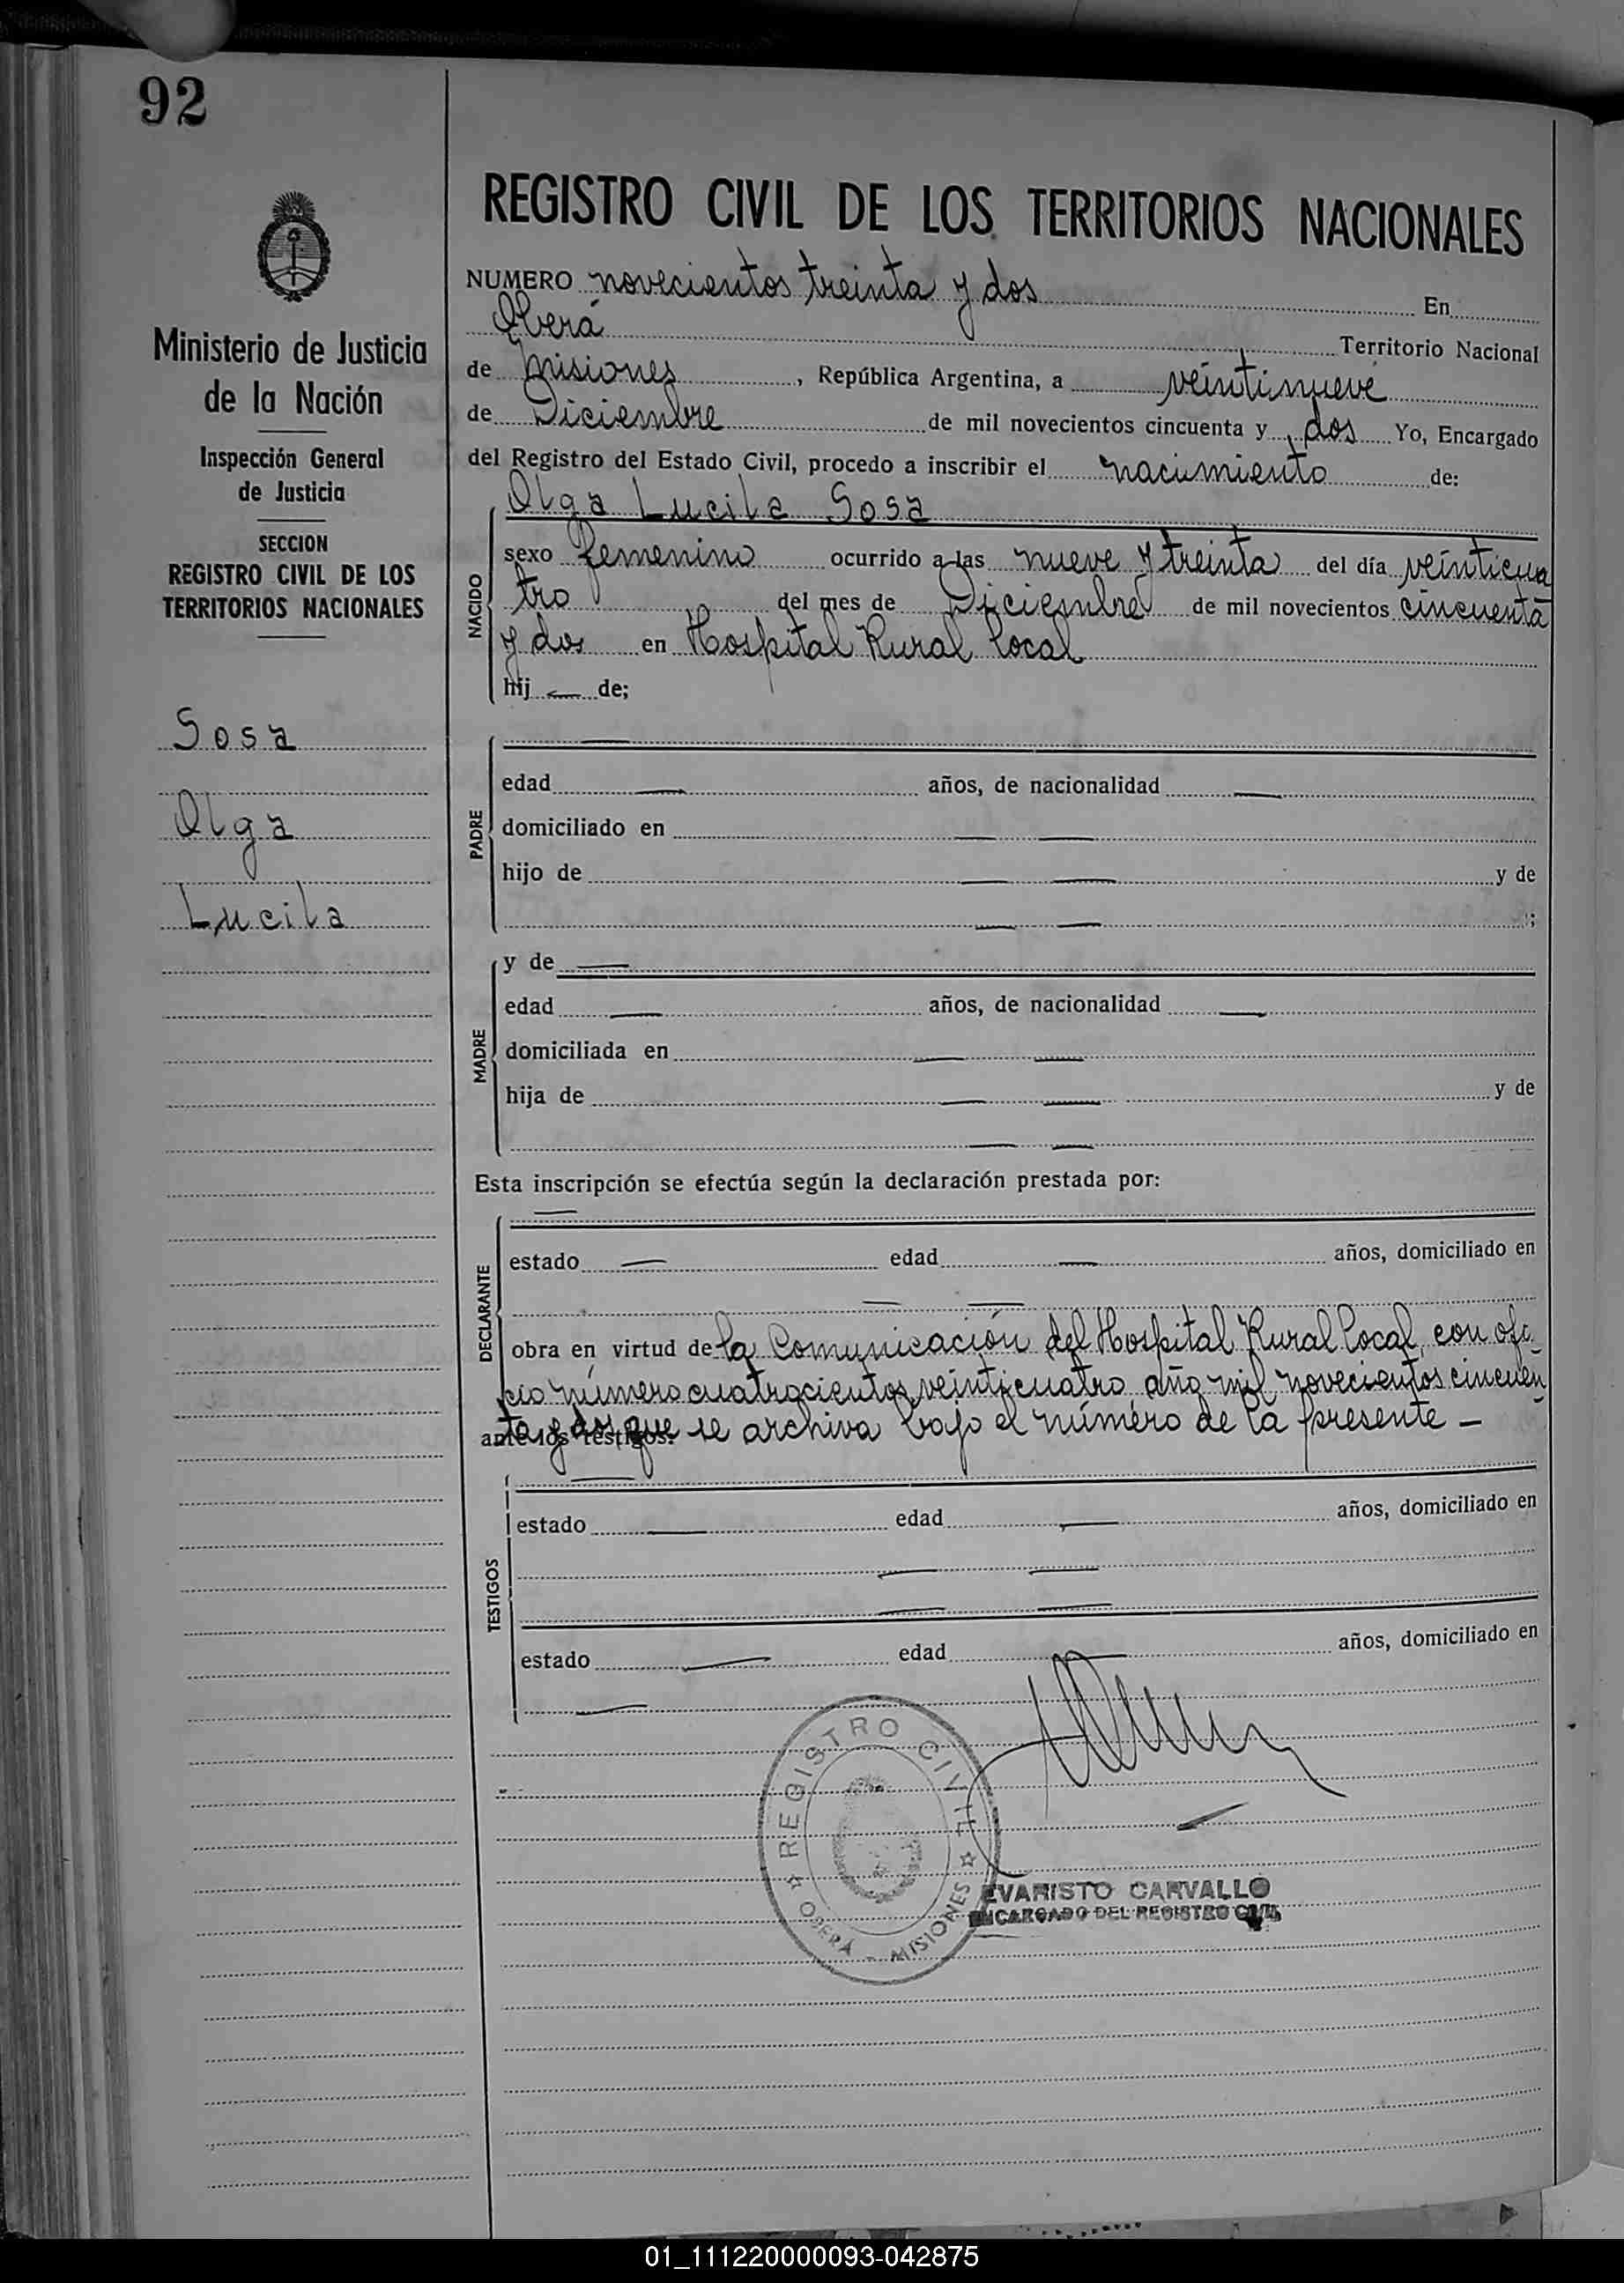 92
REGISTRO CIVIL DE LOS TERRITORIOS NACIONALES
Ministerio de Justicia
de la Nación
Inspección General
de Justicia
SECCION
REGISTRO CIVIL DE LOS
TERRITORIOS NACIONALES
Sosa
Olga
Lucila
NUMERO novecientos treinta y dos En
Oberá Territorio Nacional
de Misiones, República Argentina, a veintinueve
de Diciembre de mil novecientos cincuenta y dos Yo, Encargado
del Registro del Estado Civil, procedo a inscribir el nacimiento de:
NACIDO
Olga Lucila Sosa
sexo femenino ocurrido a las nueve y treinta del día veinticua
tro del mes de Diciembre de mil novecientos cincuenta
y dos en Hospital Rural Local
hij — de;
PADRE
—
edad — años, de nacionalidad —
domiciliado en — —
hijo de — — y de
— — ;
MADRE
y de —
edad — años, de nacionalidad —
domiciliada en — —
hija de — — y de
— —
Esta inscripción se efectúa según la declaración prestada por:
DECLARANTE
—
estado — edad — años, domiciliado en
— —
obra en virtud de la Comunicación del Hospital Rural Local, con ofi
cio número cuatrocientos veinticuatro año mil novecientos cincuen
ta y dos que se archiva bajo el número de la presente —
ante los testigos:
TESTIGOS
—
estado — edad — años, domiciliado en
— —
— —
estado — edad — años, domiciliado en
—
REGISTRO CIVIL
OBERÁ - MISIONES
EVARISTO CARVALLO
ENCARGADO DEL REGISTRO CIVIL
01_111220000093-042875